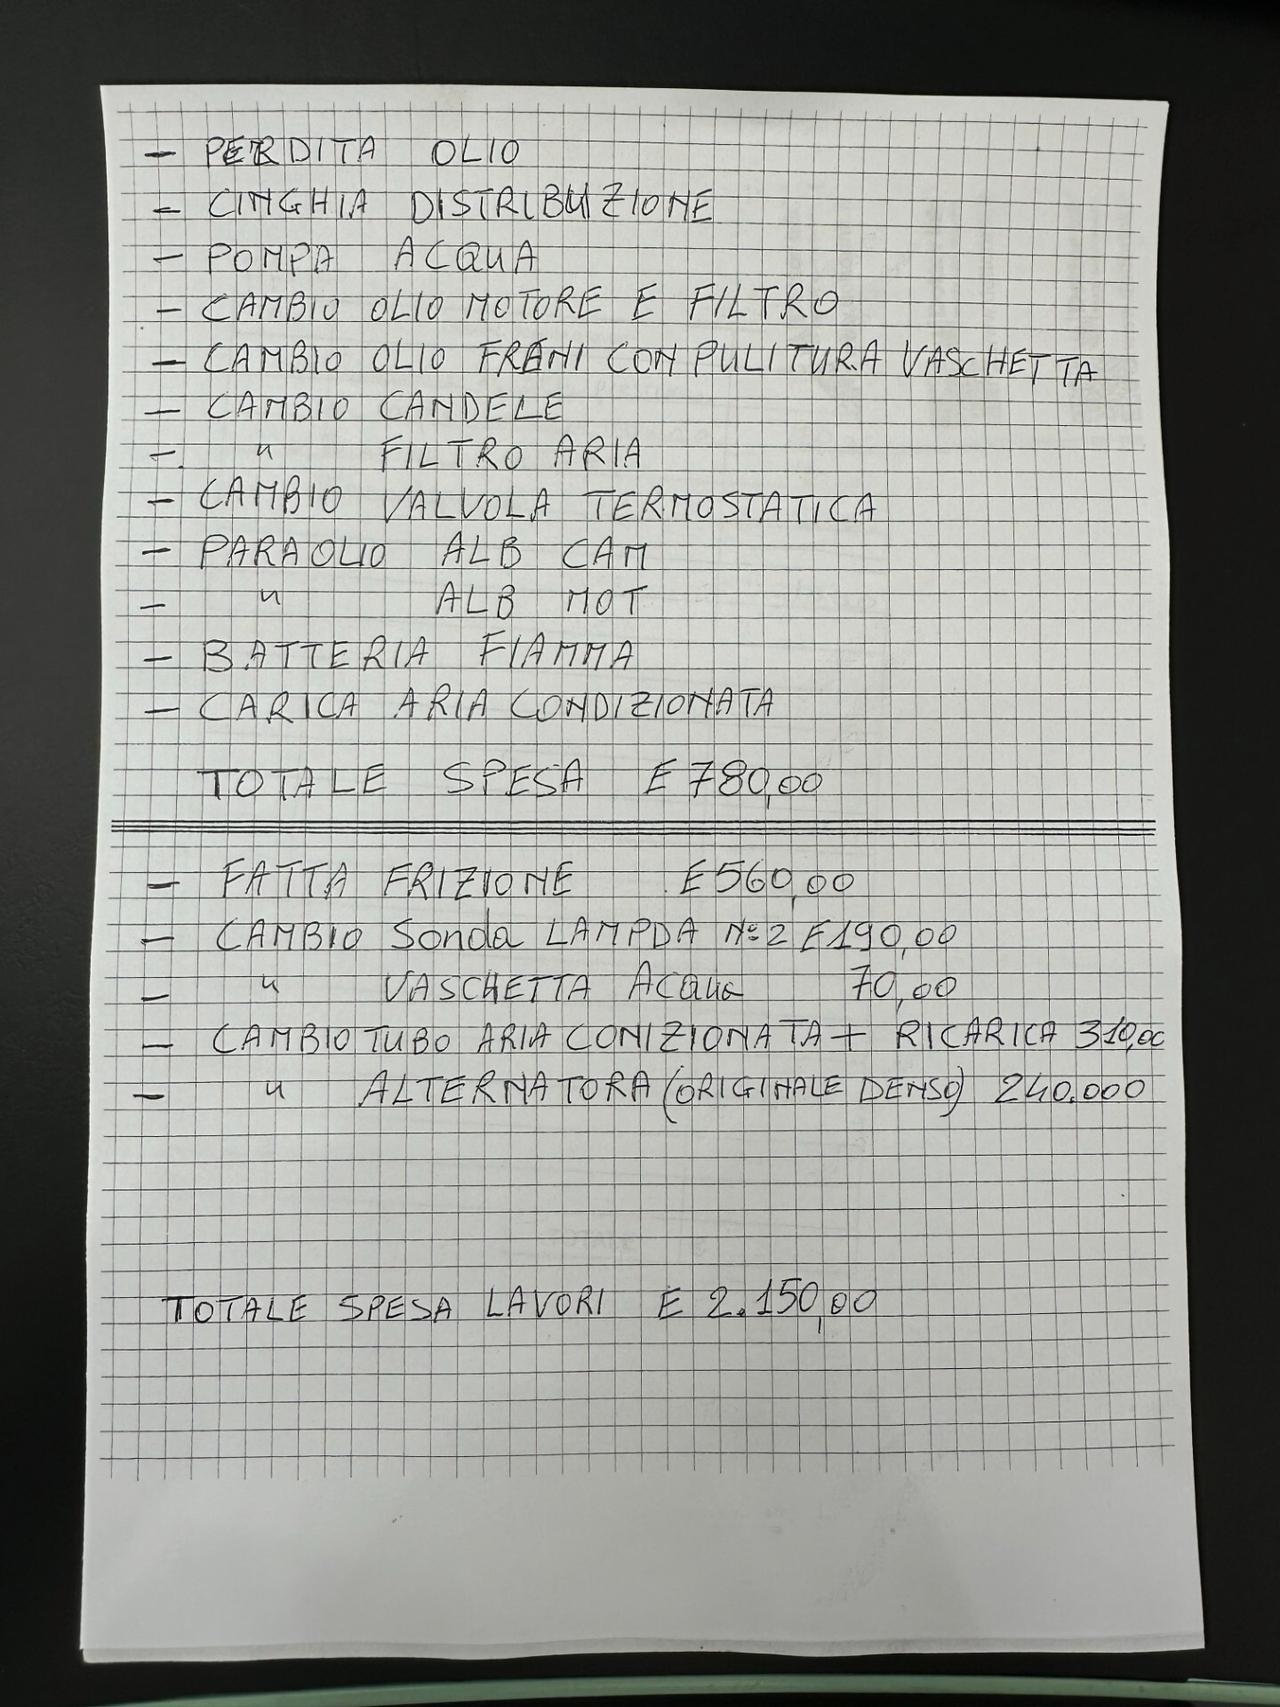 - PERDITA OLIO
- CINGHIA DISTRIBUZIONE
- POMPA ACQUA
- CAMBIO OLIO MOTORE E FILTRO
- CAMBIO OLIO FRENI CON PULITURA VASCHETTA
- CAMBIO CANDELE
- " FILTRO ARIA
- CAMBIO VALVOLA TERMOSTATICA
- PARAOLIO ALB CAM
- " ALB MOT
- BATTERIA FIAMMA
- CARICA ARIA CONDIZIONATA
TOTALE SPESA € 780,00
- FATTA FRIZIONE € 560,00
- CAMBIO Sonda LAMPDA N°2 € 190,00
- " VASCHETTA Acqua 70,00
- CAMBIO TUBO ARIA CONIZIONATA + RICARICA 310,00
- " ALTERNATORA (ORIGINALE DENSO) 240.000
TOTALE SPESA LAVORI € 2.150,00